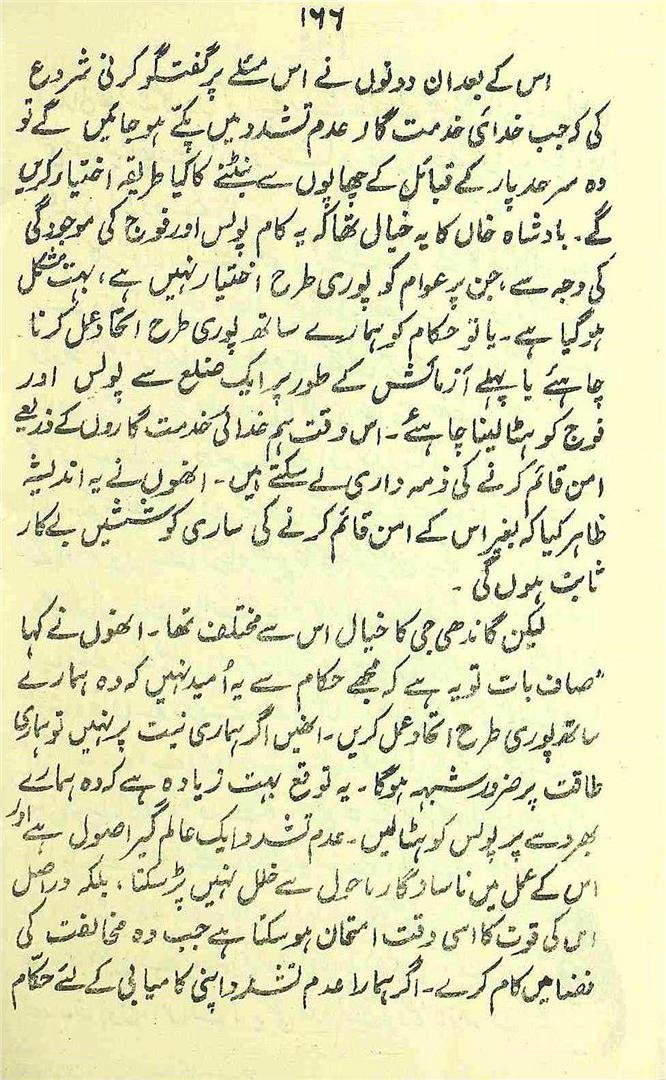 ۱۶۶
اس کے بعد ان دونوں نے اس مسئلے پر گفتگو کرنی شروع
کی کہ جب خدائی خدمت گار عدم تشدد میں پکے ہو جائیں گے تو
وہ سرحد پار کے قبائل کے چھاپوں سے نبٹنے کا کیا طریقہ اختیار کریں
گے۔ بادشاہ خاں کا یہ خیال تھا کہ یہ کام پولس اور فوج کی موجودگی
کی وجہ سے، جن پر عوام کو پوری طرح اختیار نہیں ہے، بہت مشکل
ہو گیا ہے۔ یا تو حکام کو ہمارے ساتھ پوری طرح اتحاد عمل کرنا
چاہئے یا پہلے آزمائش کے طور پر ایک ضلع سے پولس اور
فوج کو ہٹا لینا چاہئے۔ اس وقت ہم خدائی خدمت گاروں کے ذریعے
امن قائم کرنے کی ذمہ داری لے سکتے ہیں۔ انھوں نے یہ اندیشہ
ظاہر کیا کہ بغیر اس کے امن قائم کرنے کی ساری کوششیں بے کار
ثابت ہوں گی۔
لیکن گاندھی جی کا خیال اس سے مختلف تھا۔ انھوں نے کہا
"صاف بات تو یہ ہے کہ مجھے حکام سے یہ اُمید نہیں کہ وہ ہمارے
ساتھ پوری طرح اتحاد عمل کریں۔ انھیں اگر ہماری نیت پر نہیں تو ہماری
طاقت پر ضرور شبہہ ہوگا۔ یہ توقع بہت زیادہ ہے کہ وہ ہمارے
بھروسے پر پولس کو ہٹا لیں۔ عدم تشدد ایک عالم گیر اصول ہے اور
اس کے عمل میں ناسازگار ماحول سے خلل نہیں پڑ سکتا، بلکہ دراصل
اس کی قوت کا اسی وقت امتحان ہو سکتا ہے جب وہ مخالفت کی
فضا میں کام کرے۔ اگر ہمارا عدم تشدد اپنی کامیابی کے لئے حکّام